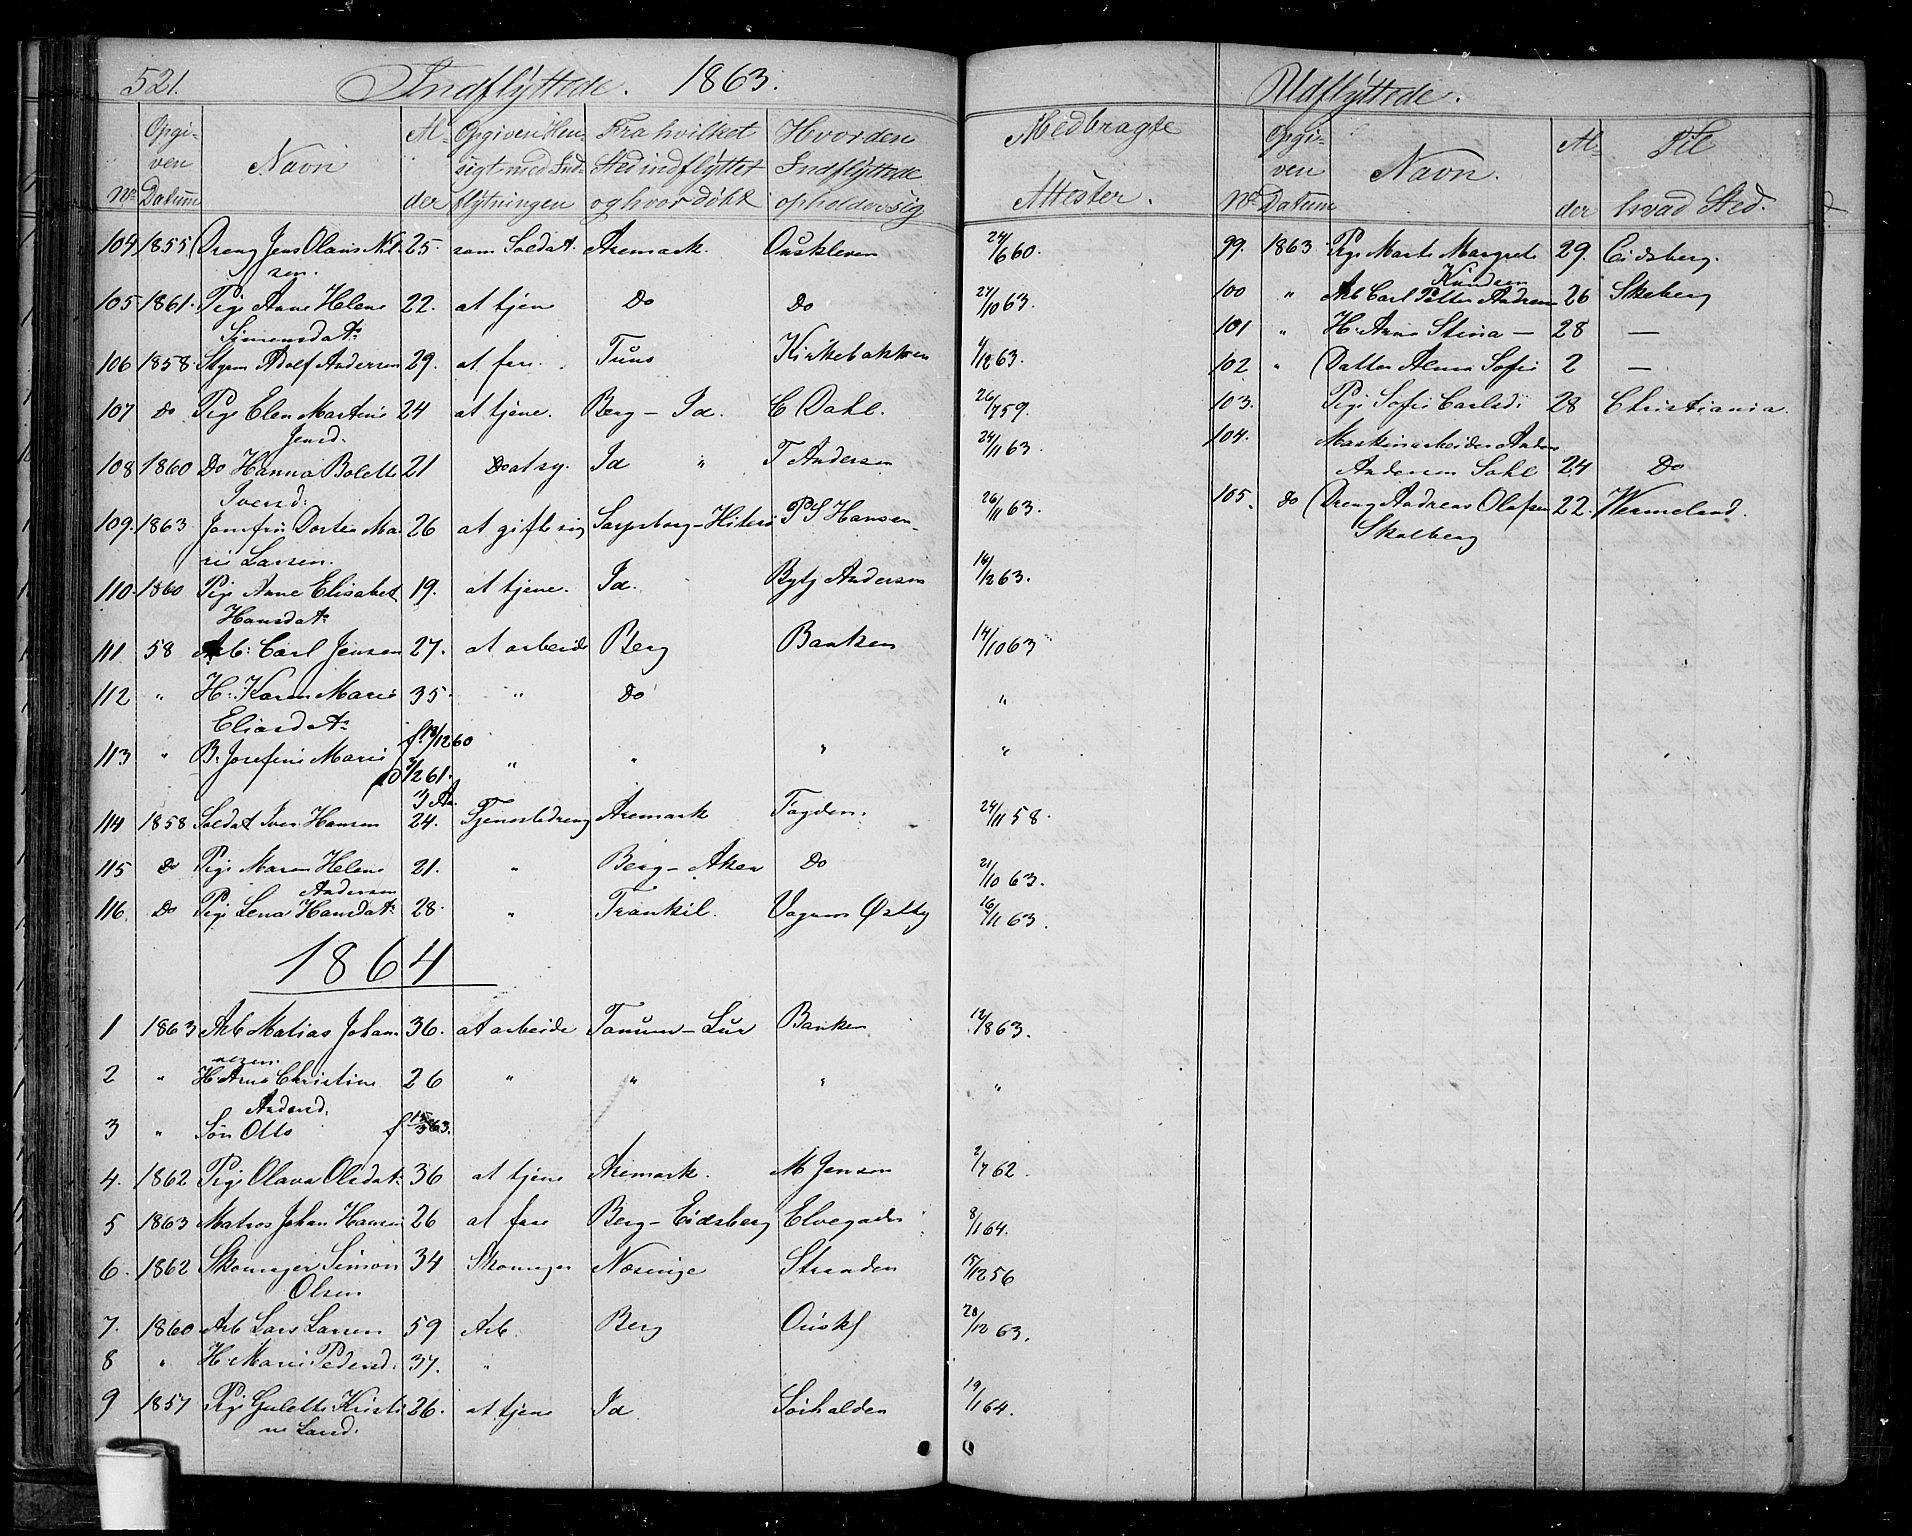 521. Indflyttede. 1863. Udflyttede.
No Opgiven Datum Navn Alder Opgiven Hensigt med Indflytningen Fra hvilket Sted indflyttet og hvor døbt Hvor den Indflyttede opholder sig Medbragte Attester.
No Opgiven Datum Navn. Alder Til hvad Sted.
104 1855 Dreng Jens Olaus Nil- 25. som Soldat. Aremark. Ouskleven 24/6 60.
sen.
105 1861. Pige Anne Helene 22. at tjene Do Do 27/10 63.
Simensdatr
106 1858. Styrm Adolf Andersen 29. at fare. Tune Kirkebakken /12 63.
107 Do Pige Elen Martine 24 at tjene. Berg - Id. C Dahl. 26/7 59.
Jensd.
108 1860 Do Hanna Bolette 21 Do at sy. Id " T Andersen 24/11 63.
Iversd:
109. 1863 Jomfru Dortea Ma- 26 at gifte sig Sarpsborg - P S Hansen 26/11 63.
rie Larsen.
110. 1860 Pige Anne Elisabet 19. at tjene. Id. Andersen 16/12 63.
Hansdatr
111 58 Arb: Carl Jensen 27. at arbeide Berg Banken 14/10 63
112 " H: Karen Marie 35. " Do "
Eliasdatr
113 " B. Josefine Marie f. 18/12 60 " " " "
D /2 61.
3 Ar.
114 1858 Soldat Iver Hansen 24. Tjenestedreng Aremark Tøgden. 24/11 58.
115 Do Pige Maren Helene 21. " Berg - Aker Do 21/10 63.
Andersen
116. Do Pige Lena Hansdatr 28. " Trankil. Østby 16/11 63.
1864
1 1863 Arb Matias Johan- 36. at arbeide Tanum - Lur Banken 12/8 63.
nesen.
2 " H: Anne Christine 26 " " " "
Andersd:
3 " Søn Otto f 15/3 63.
4. 1862 Pige Olava Olsdatr 36 at tjene Aremark. M Jensen 2/7 62.
5 1863 Matros Johan Hansen 26 at fare Berg - Eidsberg Elvegaden 8/1 64.
6. 1862 Skomager Simon 34 Skomager Næsinge Stranden 17/12 56
Olsen
7. 1860 Arb Lars Larsen 59 Arb. Berg Ouskl 28/12 63.
8 " H: Marie Pedersd: 37. "
9 1857 Pige Gulette Kristi- 26. at tjene Id. Sørhalden 19/1 64.
ne Larsd.
99. 1863 Pige Marte Margrete 29. Eidsberg.
Knudsen
100 " Arb Carl Petter Andresen 26 Skeberg
101 " H: Anne Stina — 28 —
102 " Datter Alma Sofie 2 —
103. Pige Sofie Carlsd: 28 Christiania.
104. Maskinarbeider Anders
Andersen Dahl 24 Do
105. Do Dreng Andreas Olafsen 22. Wermeland.
Skalberg